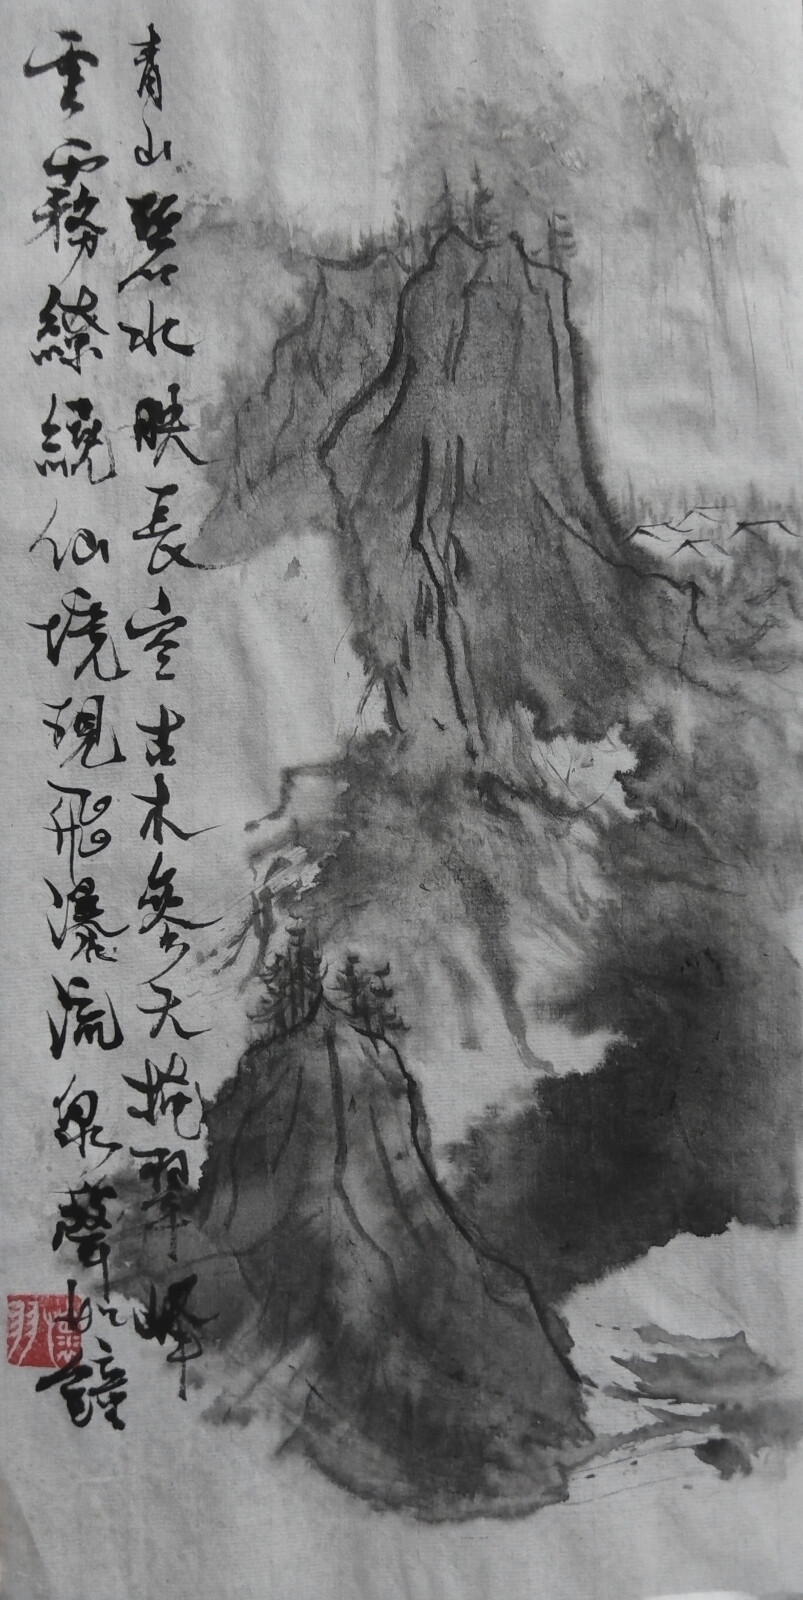 青山碧水映長空古木參天掩翠峰
雲霧繚繞仙境現飛瀑流泉聲如鐘